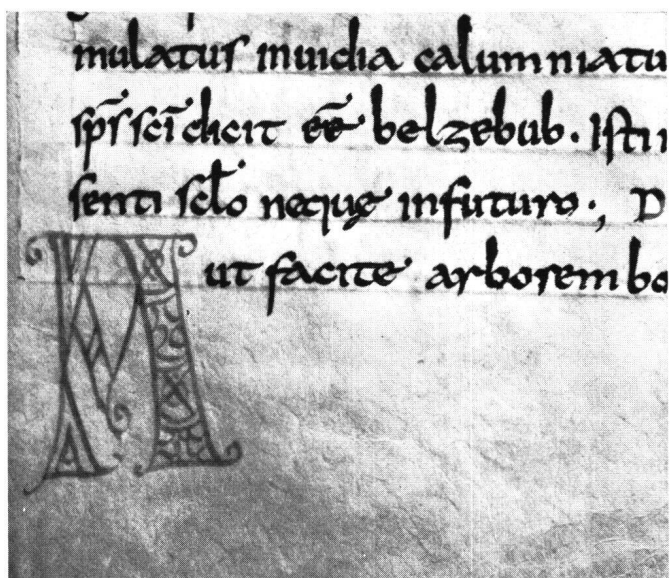 mulatus inuidia calumniatu
sp̄s sc̄i dicit eē belzebub. Isti
senti sc̄lo neque in futuro·,
Aut facite arborem bo